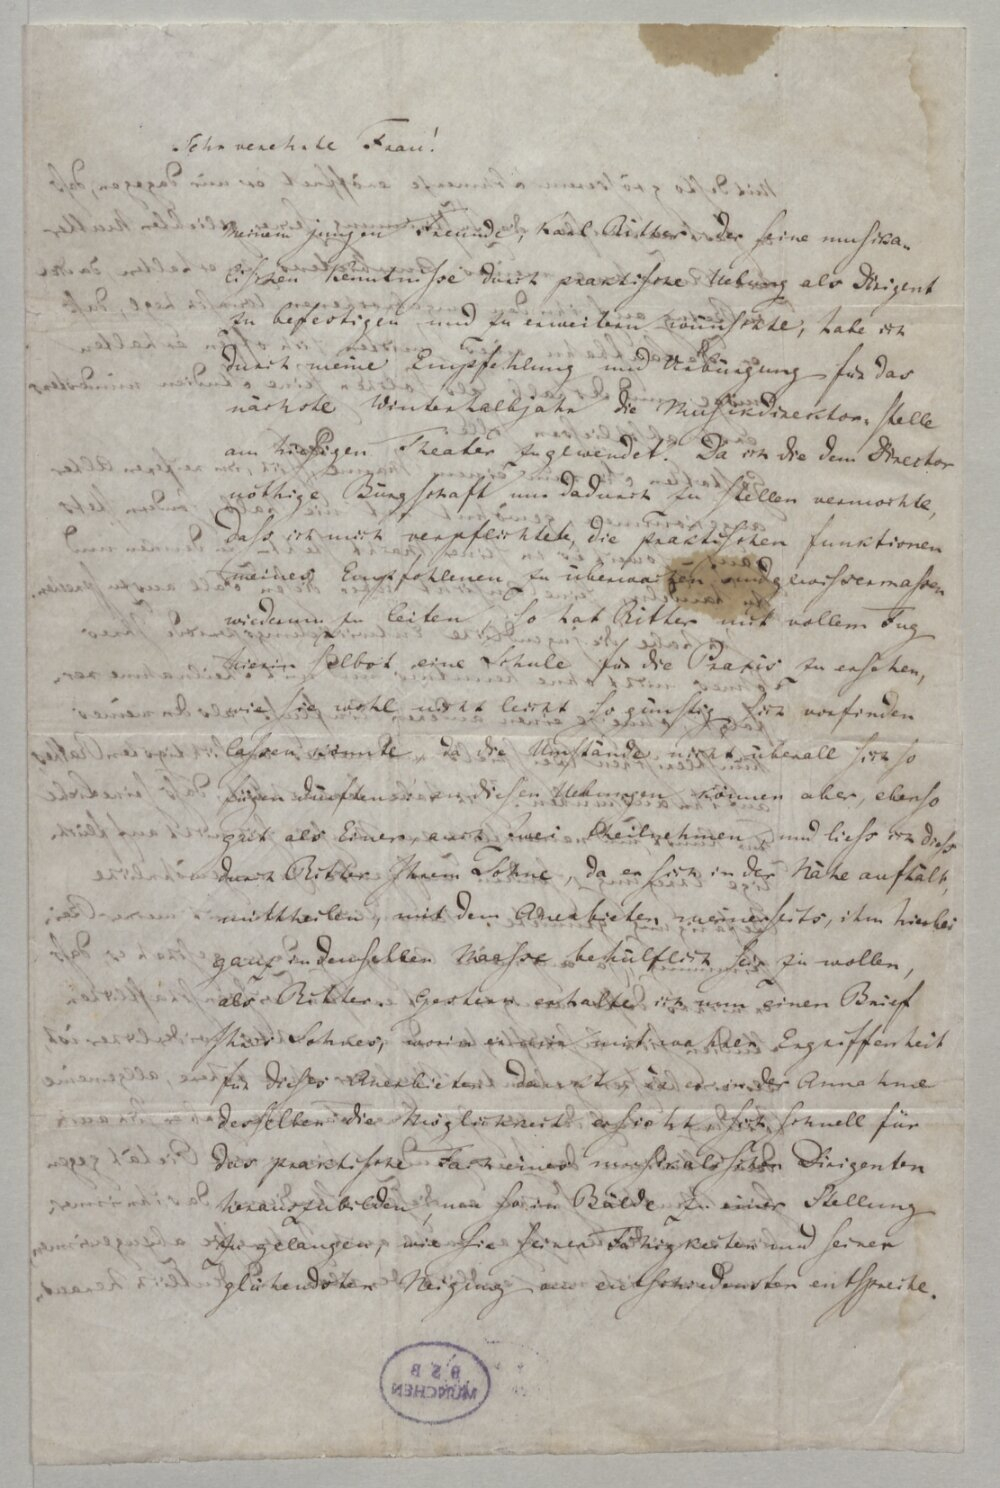 Sehr verehrte Frau!
Meinem jungen Freunde, Karl Ritter der seine musika-
lischen Kenntnisse durch praktische Uebung als Dirigent
zu befestigen und zu erweitern wünschte, habe ich
durch meine Empfehlung und Verbürgung für das
nächste Winterhalbjahr die Musikdirektor-stelle
am hiesigen Theater zugewendet. Da ich die dem Director
nöthige Bürgschaft nur dadurch zu stellen vermochte,
dass ich mich verpflichtete, die praktischen funktionen
meines Empfohlenen zu überwachen und gewissermassen
wiederum zu leiten, so hat Ritter mit vollem Fug
hierin selbst eine Schule für die Praxis zu ersehen,
wie sie wohl nicht leicht so günstig sich vorfinden
lassen könnte, da die Umstände nicht überall sich so
fügen dürften. an diesen Uebungen können aber, ebenso
gut als Einer, auch zwei theilnehmen, und liess ich diess
durch Ritter Ihrem Sohne, da er sich in der Nähe aufhält,
mittheilen, mit dem Anerbieten meinerseits, ihm hierbei
ganz in demselben Maasse behülflich sein zu wollen,
als Ritter. Gestern erhalte ich nun einen Brief
Ihres Sohnes, worin er mir mit wahrer Ergriffenheit
für dieses Anerbieten dankt, da er in der Annahme
desselben die Möglichkeit ersieht, sich schnell für
das praktische Fach eines musikalischen Dirigenten
herauszubilden, um so in Bälde zu einer Stellung
zu gelangen, wie sie seinen Fähigkeiten und seiner
glühendsten Neigung am entschiedensten entspreche.
BSB
MÜNCHEN